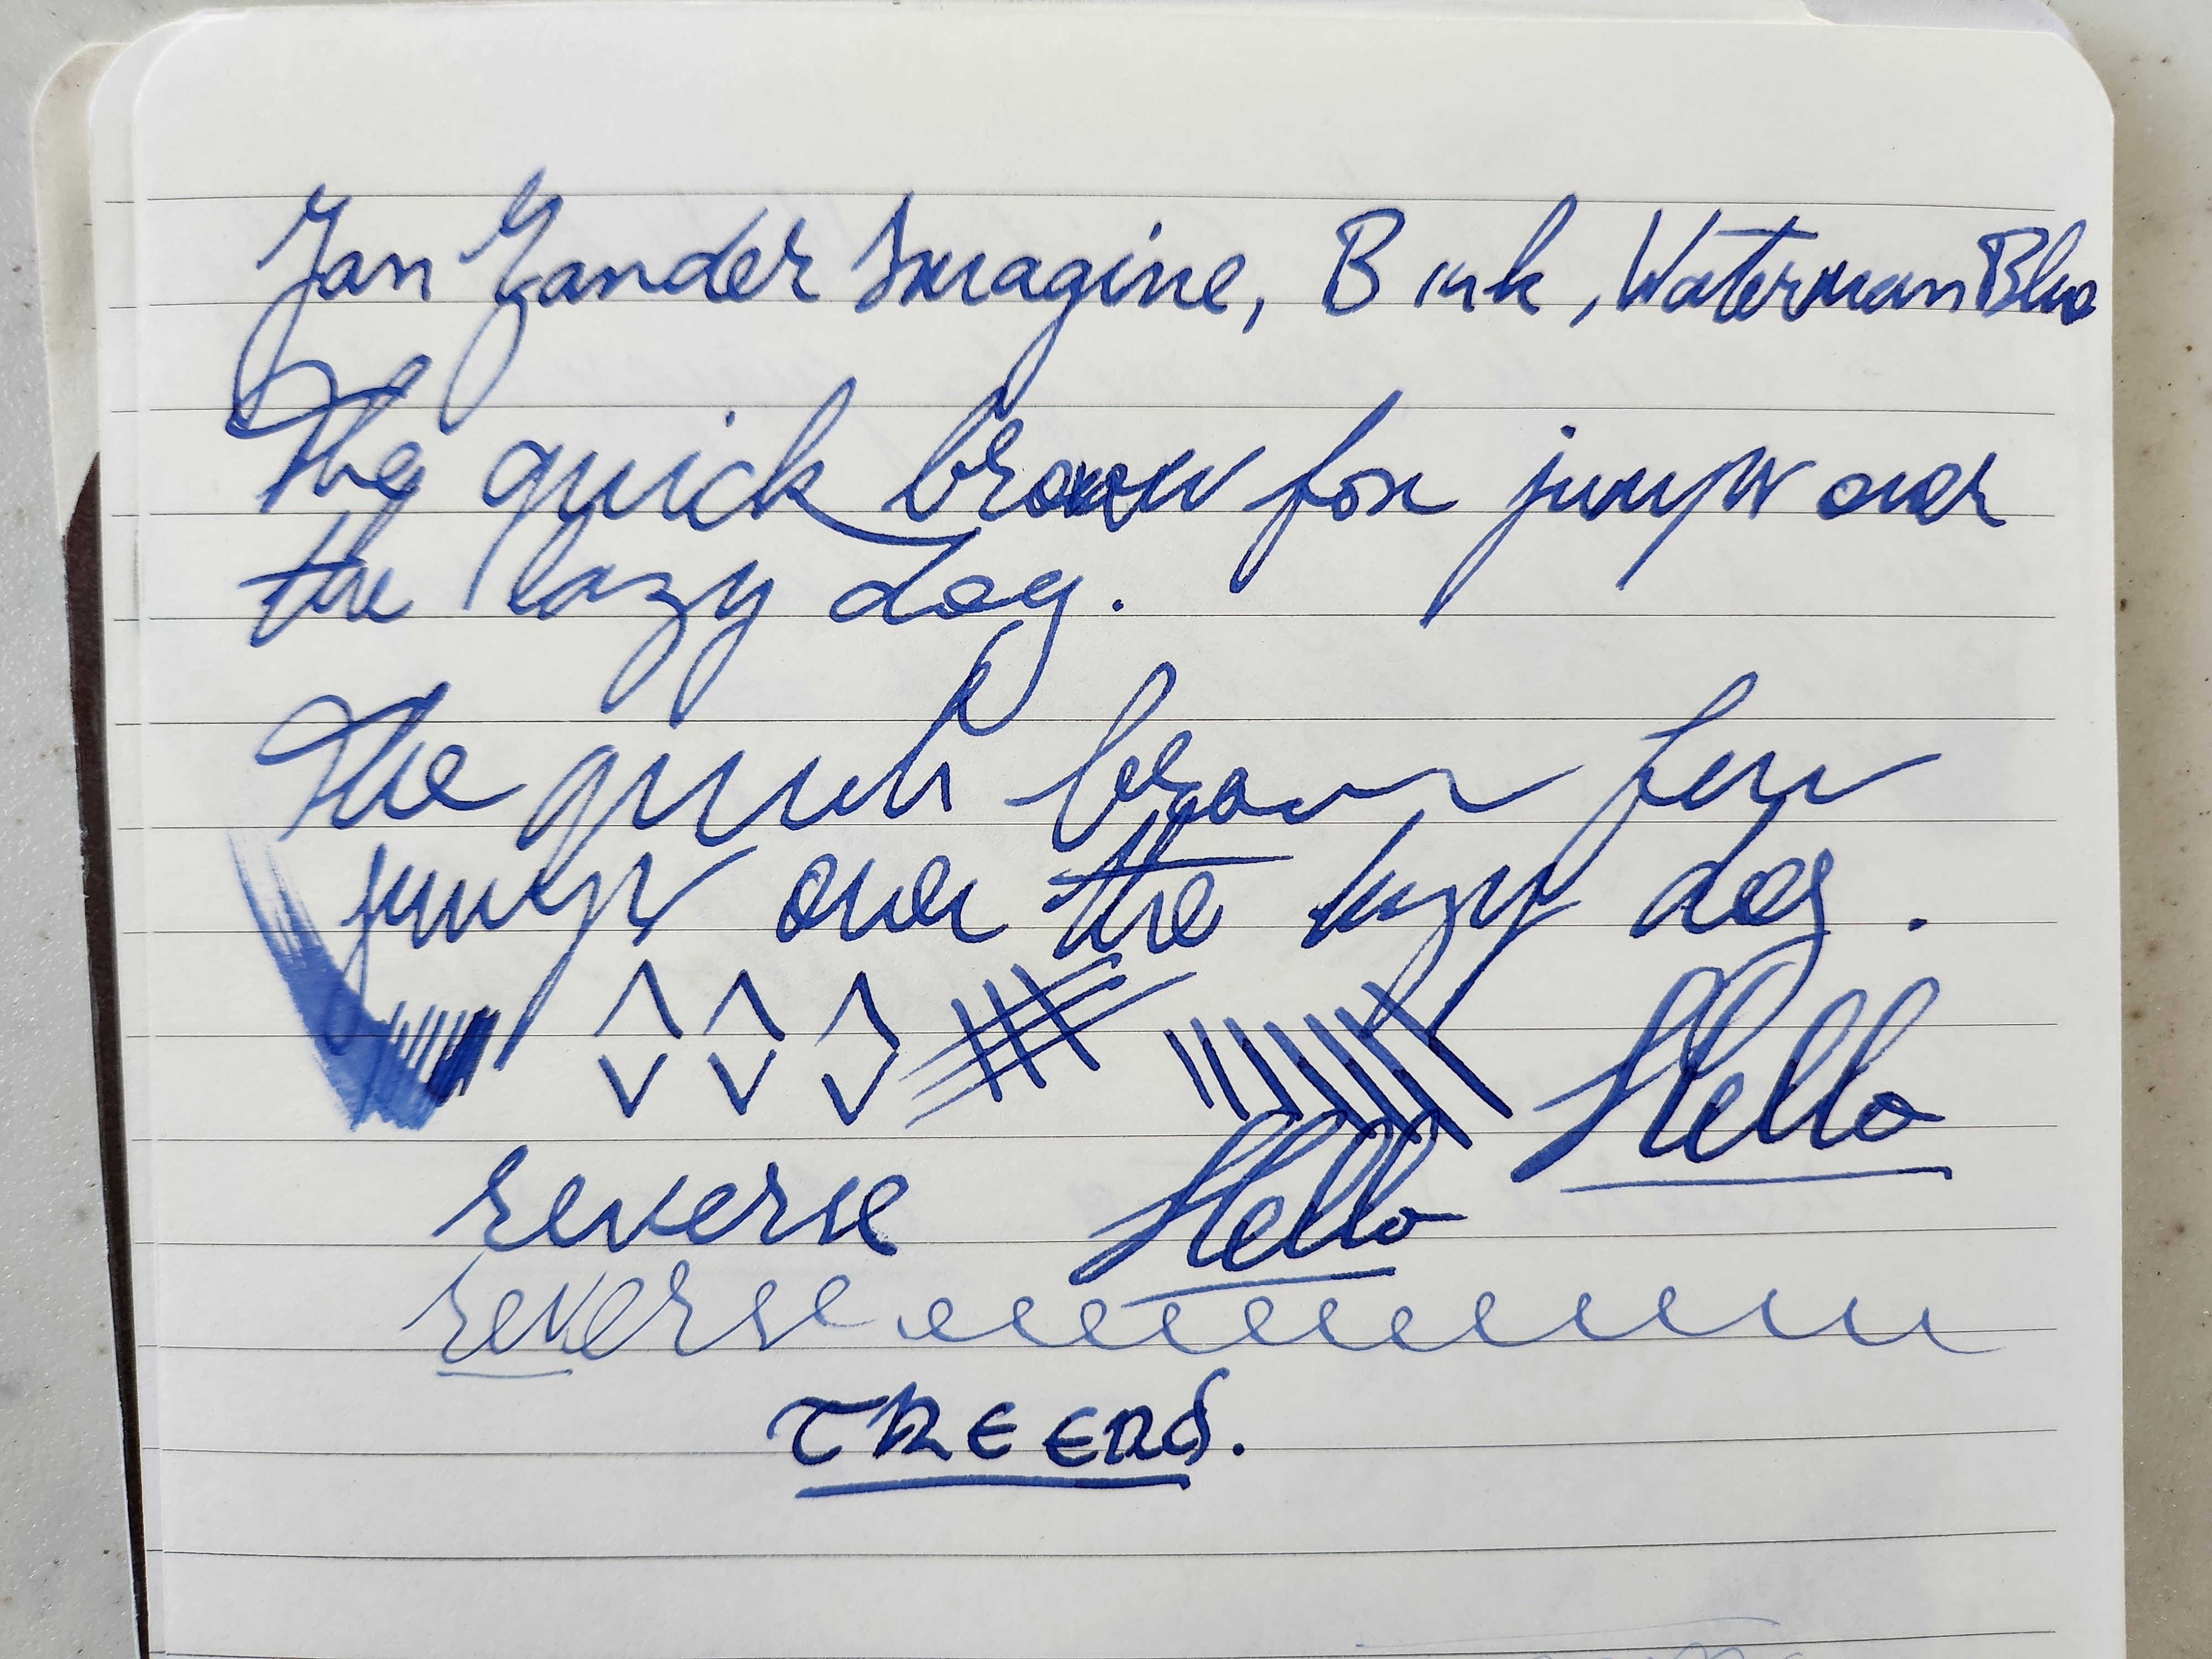 Jan Zander Imagine, B ink, Waterman Blue
The quick brown fox jumps over
the lazy dog.
The quick brown fox
jumps over the lazy dog.
Hello
reverse Hello
reverse eeeeeeeeee
THE END.